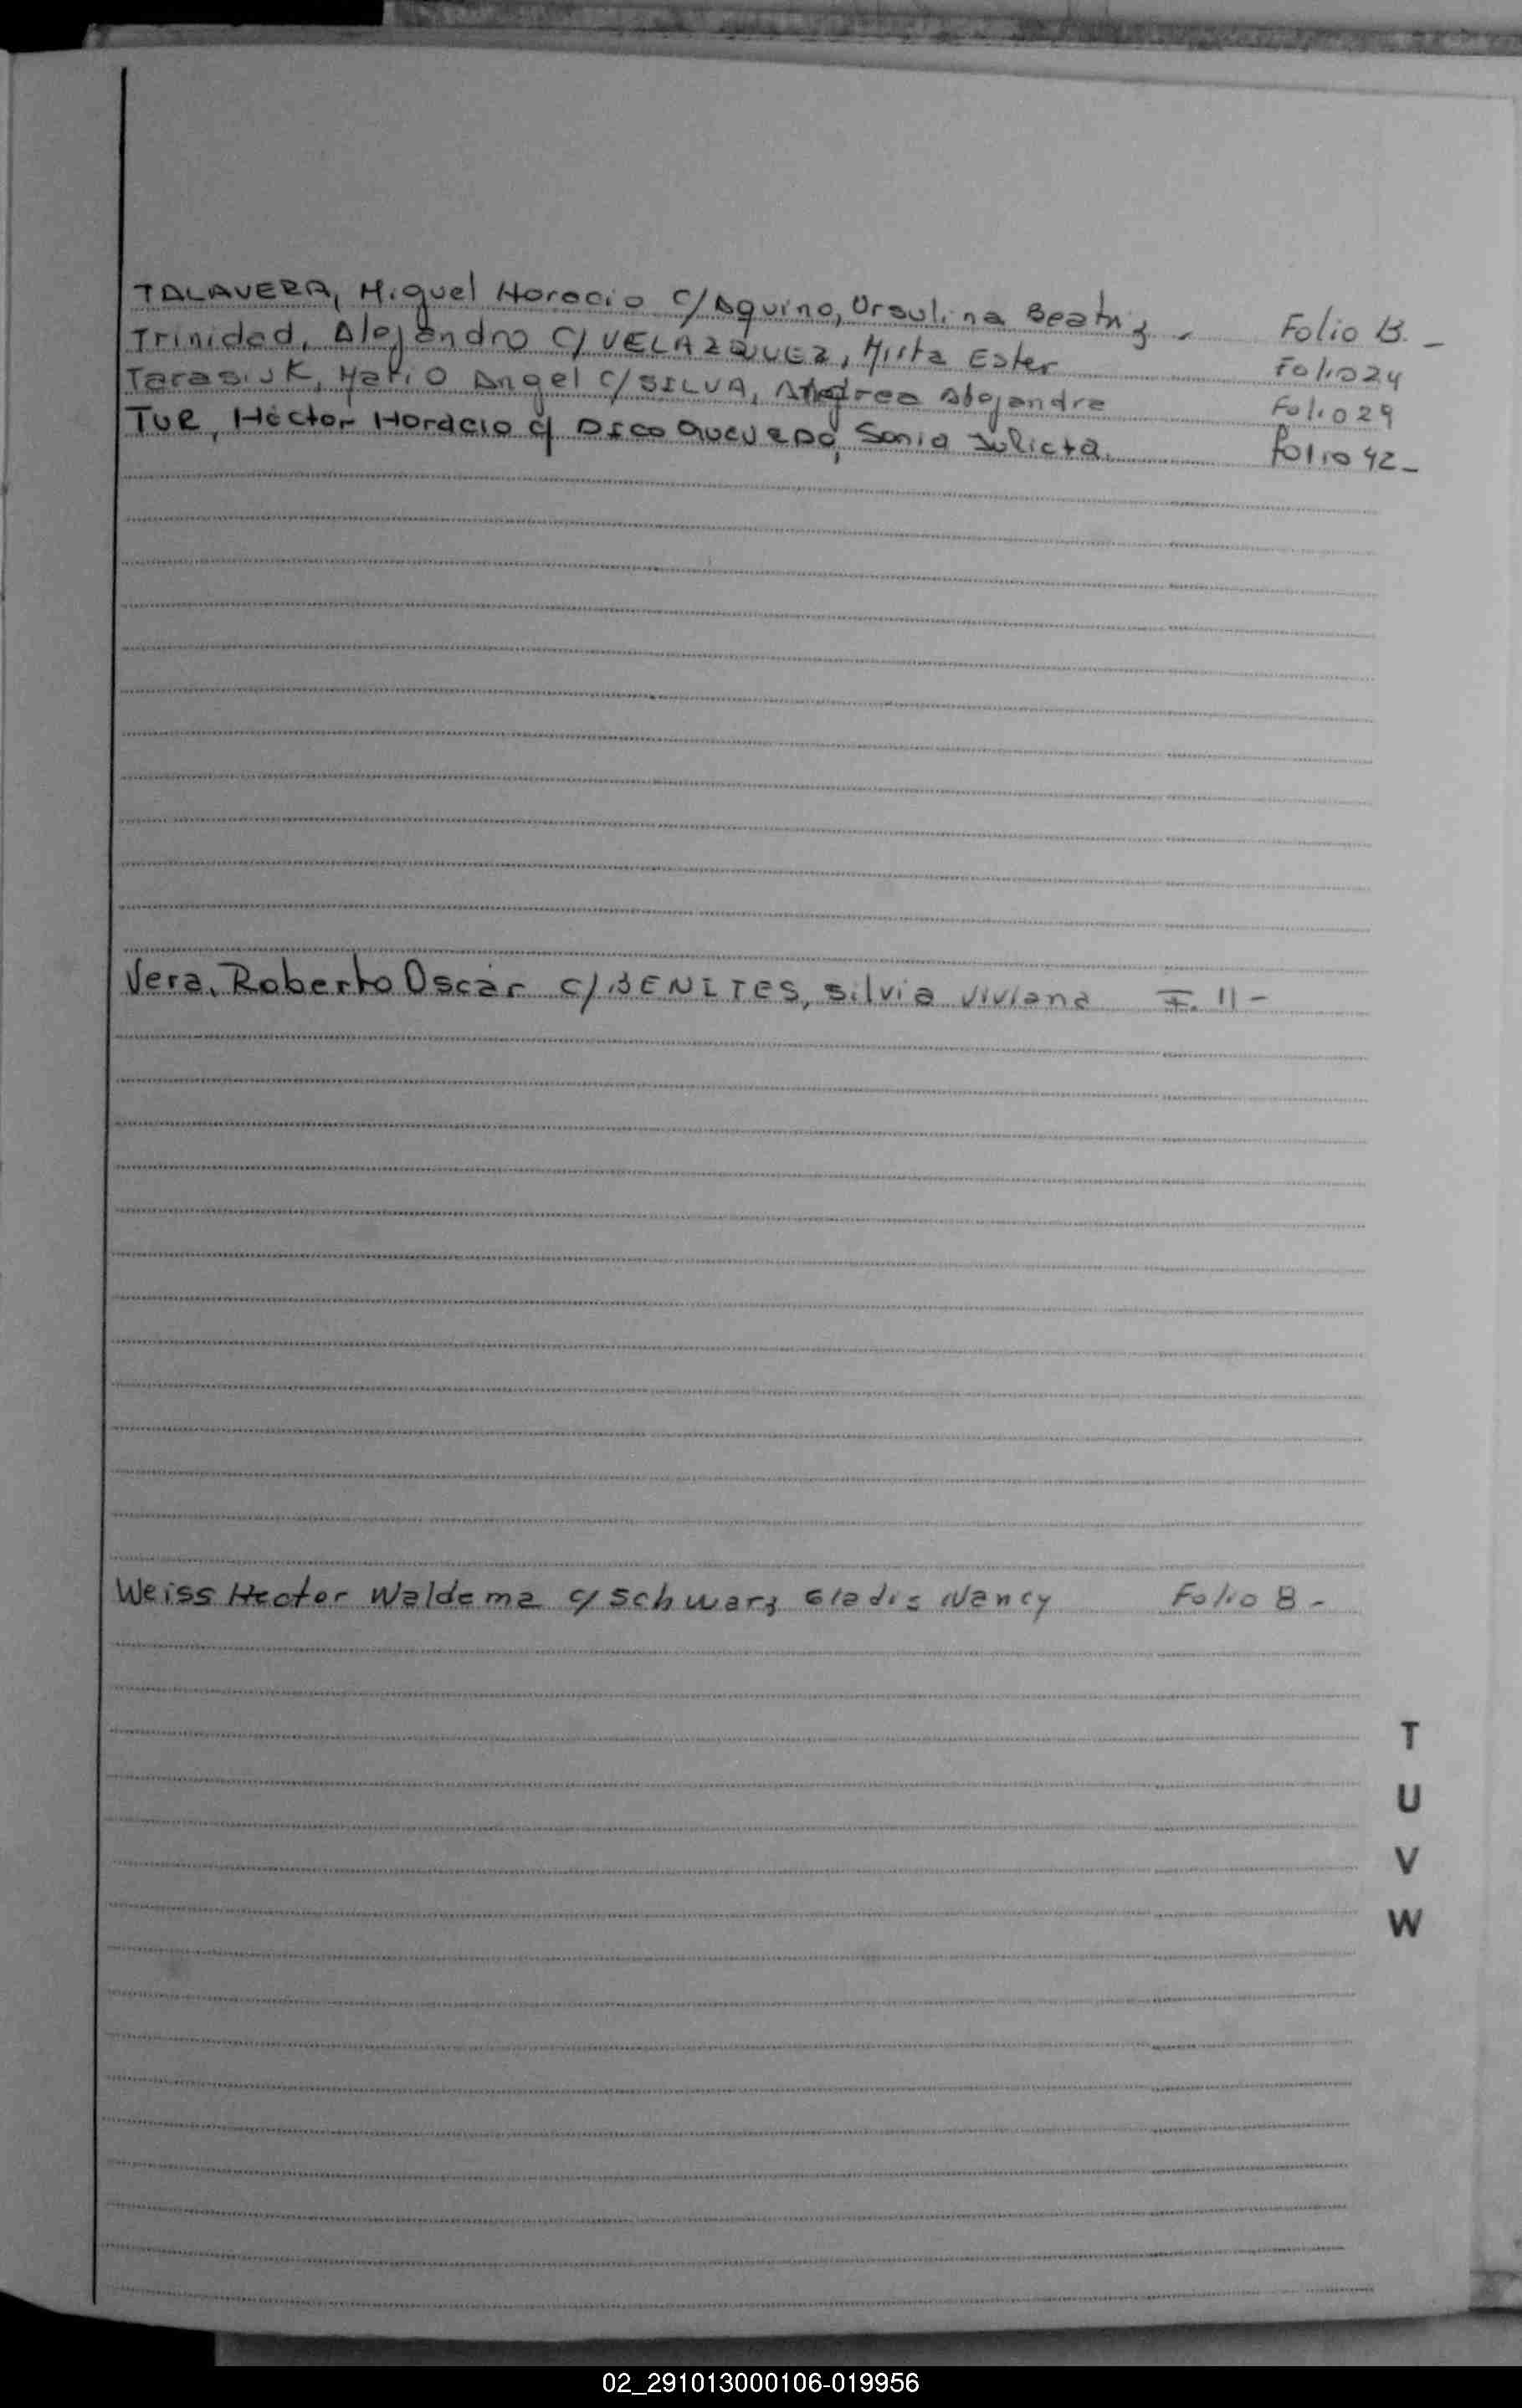 TALAVERA, Miguel Horacio C/Aquino, Ursulina Beatriz. Folio 13. -
Trinidad, Alejandro C/VELAZQUEZ, Mirta Ester Folio 24
Tarasiuk, Mario Angel C/SILVA, Andrea Alejandra Folio 29
TUR, Héctor Horacio c/ Sonia Julieta. Folio 42-
Vera, Roberto Oscar C/BENITES, Silvia Viviana F. 11-
Weiss Hector Waldema c/ Schwarz Gladis Nancy Folio 8-
T
U
V
W
02_291013000106-019956